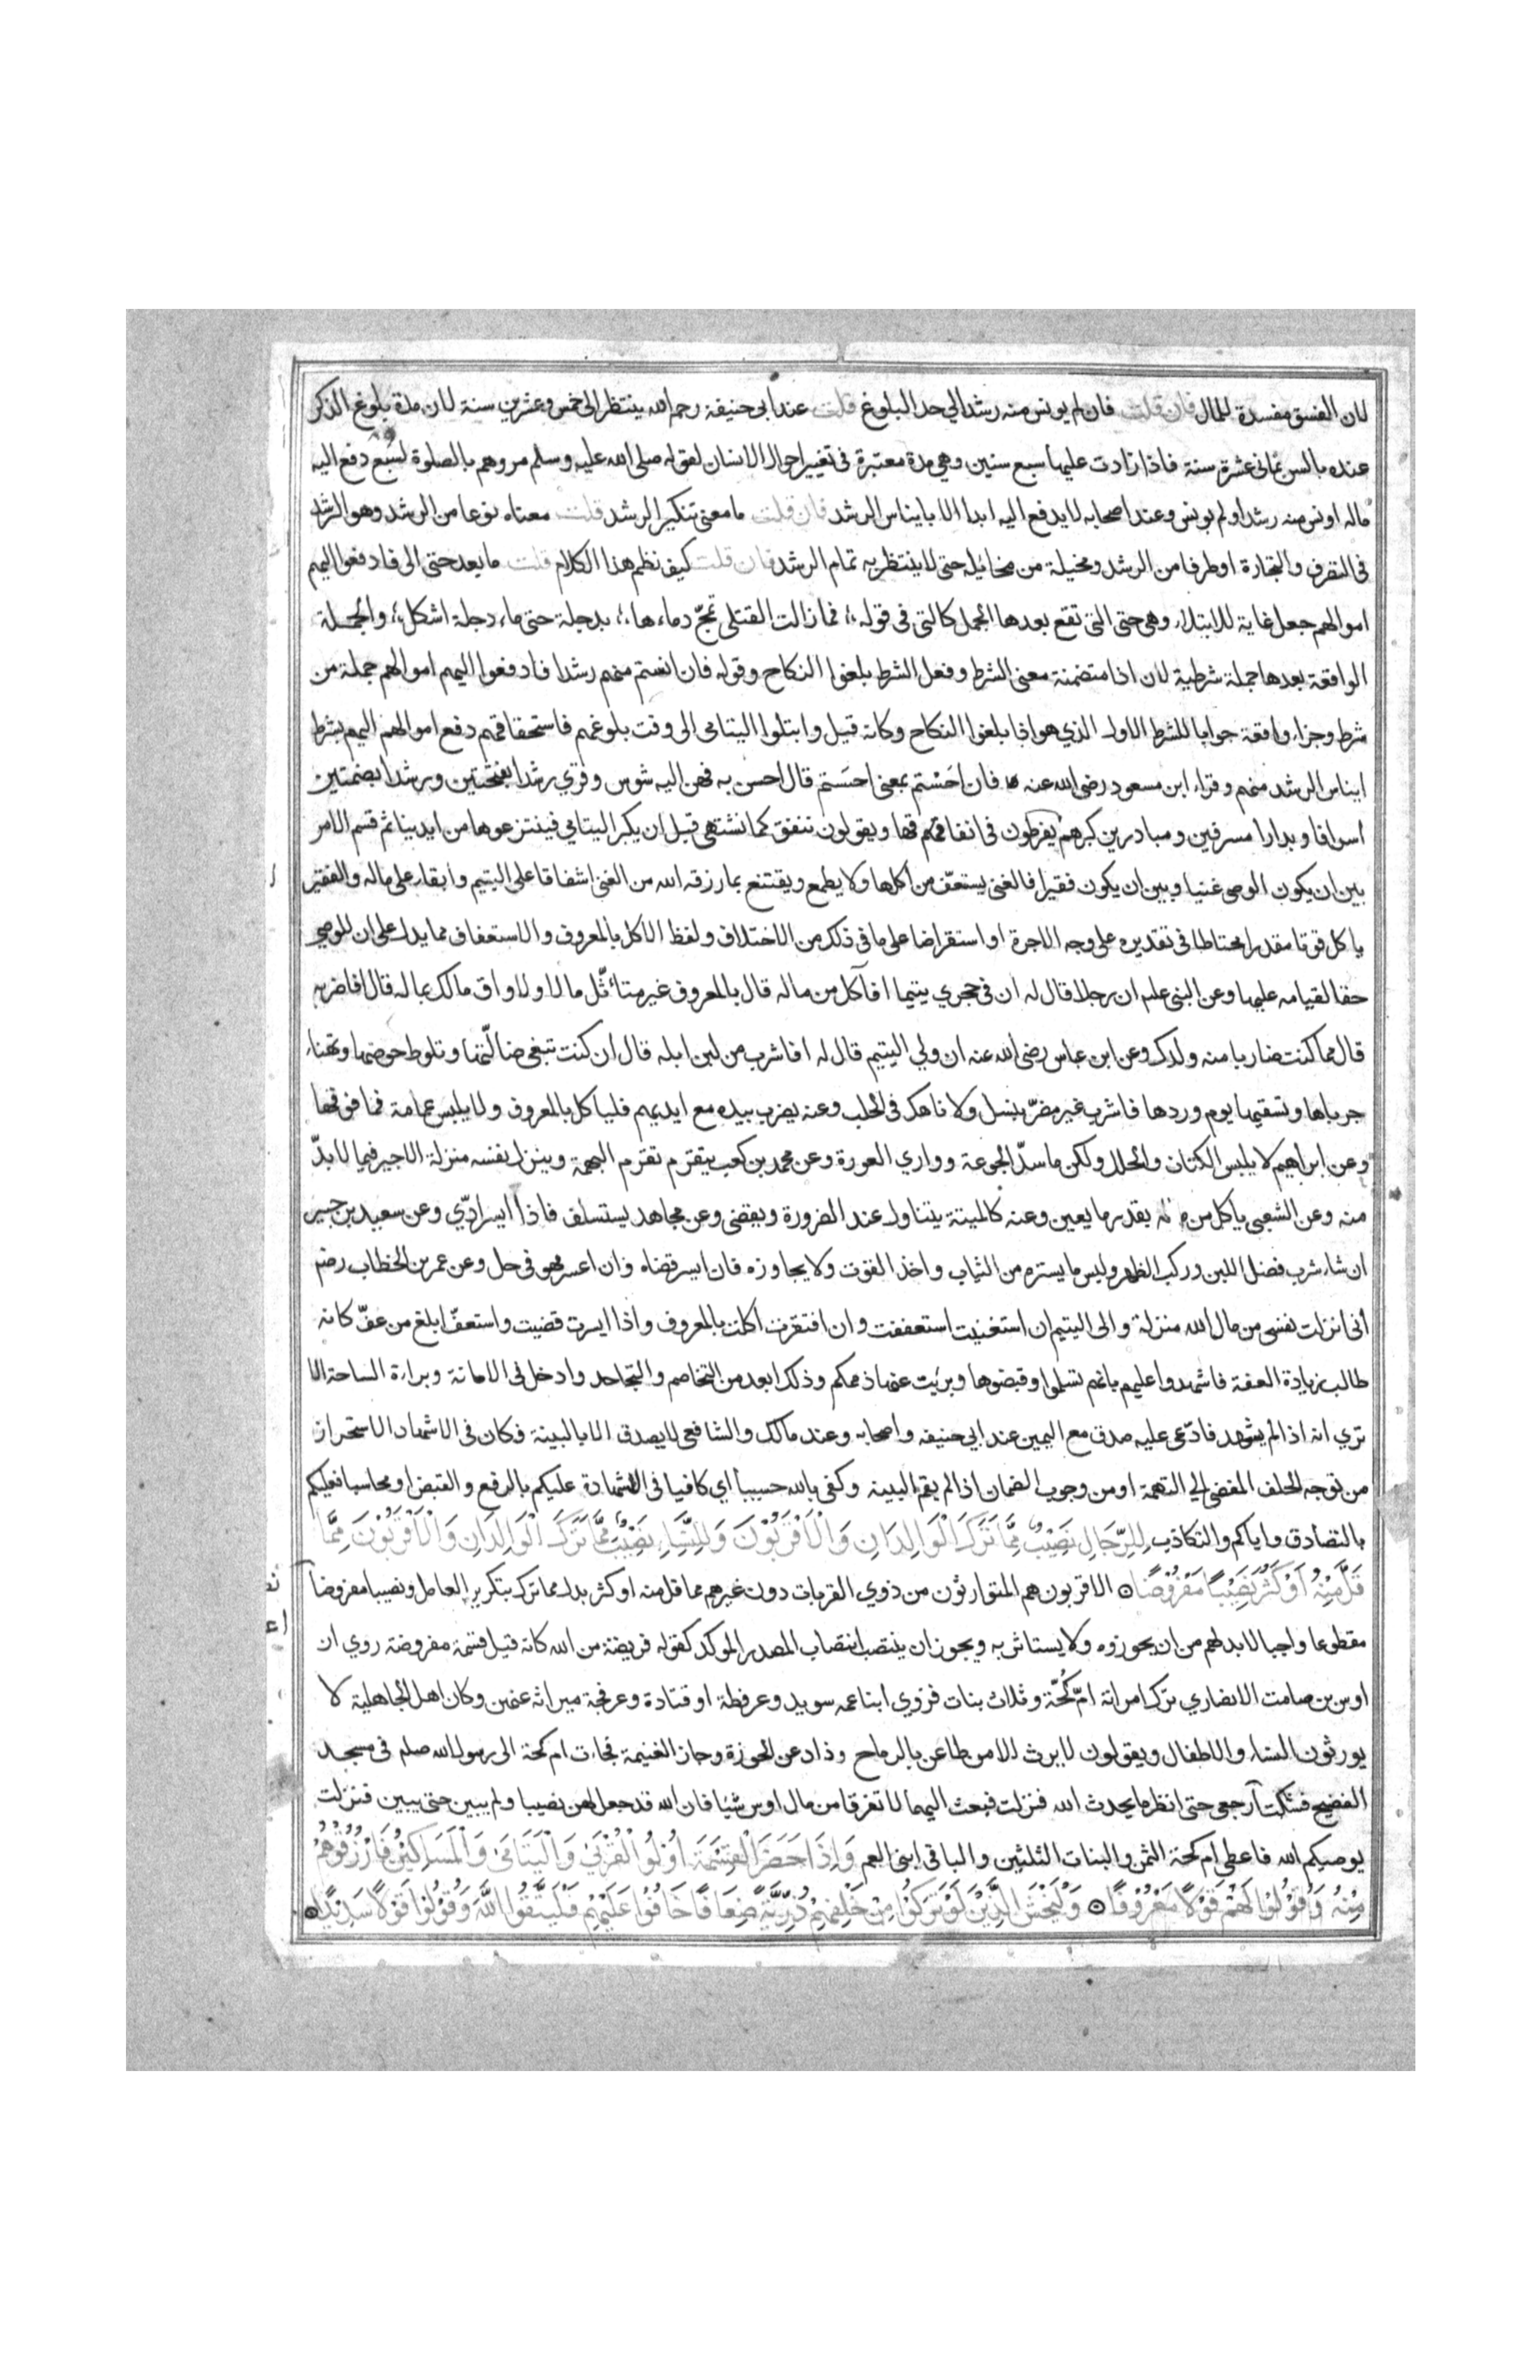 لان الفسق مفسدة للمال فان قلت فان لم يونس منه رشد الي حد البلوغ قلت عند ابي حنيفة رحمه الله ينتظر الى خمس وعشرين سنة لان مدة بلوغ الذكر
عنده بالسن ثمانى عشرة سنة فاذا زادت عليها سبع سنين وهي مدة معتبرة فى تغيير احوال الانسان لقوله صلى الله عليه وسلم مروهم بالصلوة لسبع دفع اليه
ماله اونس منه رشد او لم يونس وعند اصحابه لا يدفع اليه ابدا الا بايناس الرشد فان قلت ما معنى تنكير الرشد قلت معناه نوعا من الرشد وهو الرشد
فى التصرف والتجارة او طرفا من الرشد ومخيلة من مخائله حتى لا ينتظر به تمام الرشد فان قلت كيف نظم هذا الكلام قلت ما بعد حتى الى فادفعوا اليهم
اموالهم جعل غاية للابتلاء وهى حتى التى تقع بعدها الجمل كالتى فى قوله ؛ فما زالت القتلى تمجّ دماءها ؛ بدجلة حتى ماء دجلة اشكل ؛ والجملة
الواقعة بعدها جملة شرطية لان اذا متضمنة معنى الشرط وفعل الشرط بلغوا النكاح وقوله فان انستم منهم رشدا فادفعوا اليهم اموالهم جملة من
شرط وجزاء واقعة جوابا للشرط الاول الذي هو اذا بلغوا النكاح وكانه قيل وابتلوا اليتامى الى وقت بلوغهم فاستحقاقهم دفع اموالهم اليهم بشرط
ايناس الرشد منهم وقراء ابن مسعود رضى الله عنه فان احَسْتم بمعنى احسَستم قال احسن به فهن اليه شوس وقري رشدا بفتحتين ورشدا بضمتين
اسرافا وبدارا مسرفين ومبادرين كبرهم يفرطون فى انفاقها ويقولون ننفق كما نشتهى قبل ان يكبر اليتامي فينتزعوها من ايدينا ثم قسم الامر
بين ان يكون الوصى غنيا وبين ان يكون فقيرا فالغنى يستعف من اكلها ولا يطمع ويقتنع بما رزقه الله من الغنى اشفاقا على اليتيم وابقاء على ماله والفقير
ياكل قوتا مقدرا محتاطا فى تقديره على وجه الاجرة او استقراضا على ما فى ذلك من الاختلاف ولفظ الاكل بالمعروف والاستعفاف مما يدل على ان للوصي
حقا لقيامه عليها وعن النبى علم ان رجلا قال له ان فى حجري يتيما افآكل من ماله قال بالمعروف غير متأثّل مالا ولا واق مالك بماله قال افاضربه
قال مما كنت ضاربا منه ولدك وعن ابن عباس رضى الله عنه ان ولي اليتيم قال له افاشرب من لبن ابله قال ان كنت تبغى ضالّتها وتلوط حوضها وتهناء
جرباها وتسقيها يوم وردها فاشرب غير مضرّ بنسل ولا ناهك فى الحلب وعنه يضرب بيده مع ايديهم فلياكل بالمعروف ولا يلبس عمامة فما فوقها
وعن ابراهيم لا يلبس الكتان والحلل ولكن ما سدّ الجوعة وواري العورة وعن محمد بن كعب يتقرم تقرم البهمة وينزل نفسه منزلة الاجير فيما لا بدّ
منه وعن الشعبى ياكل من ماله بقدر ما يعين وعنه كالميتة يتناول عند الضرورة ويقضى وعن مجاهد يستسلف فاذا ايسر ادّي وعن سعيد بن جبير
ان شاء شرب فضل اللبن وركب الظهر ولبس ما يستره من الثياب واخذ القوت ولا يجاوزه فان ايسر قضاه وان اعسر فهو فى حل وعن عمر بن الخطاب رضه
أنى انزلت نفسى من مال الله منزلة والى اليتيم ان استغنيت استعففت وان افتقرت اكلت بالمعروف واذا ايسرت قضيت واستعفّ ابلغ من عفّ كانه
طالب زيادة العفة فاشهدوا عليهم بانهم تسلموا وقبضوها وبرئيت عنها ذممكم وذلك ابعد من التخاصم والتجاحد وادخل فى الامانة وبراءة الساحة الا
تري انه اذا لم يشهد فادّعى عليه صدق مع اليمين عند ابي حنيفه واصحابه وعند مالك والشافعى لا يصدق الا بالبينة فكان فى الاشهاد الاستحراز
من توجه الحلف المفضى الي التهمة او من وجوب الضمان اذا لم يقم البينه وكفى بالله حسيبا اي كافيا فى الشهادة عليكم بالدفع والقبض او محاسبا فعليكم
بالتصادق واياكم والتكاذب لِلرِّجَالِ نَصِيْبٌ مِمَّا تَرَكَ الْوَالِدَانِ وَالْاَقْرَبُوْنَ وَلِلنِّسَاءِ نَصِيْبٌ مِمَّا تَرَكَ الْوَالِدَانِ وَالْاَقْرَبُوْنَ مِمَّا
قَلَّ مِنْهُ اَوْ كَثُرَ نَصِيْبًا مَفْرُوْضًا ۝ الاقربون هم المتوارثون من ذوي القربات دون غيرهم مما قل منه او كثر بدل مما ترك بتكرير العامل ونصيبا مفروضا
مقطوعا واجبا لا بد لهم من ان يحوزوه ولا يستاثر به ويجوز ان ينتصب انتصاب المصدر الموكد كقوله فريضة من الله كانه قيل قسمة مفروضة روي ان
اوس بن صامت الانصاري ترك امراته امّ كُحّة وثلاث بنات فزوي ابنا عمه سويد وعرفطة او قتادة وعرفجة ميراثه عنهن وكان اهل الجاهلية لا
يورثون النساء والاطفال ويقولون لا يرث الا من طاعن بالرماح وذاد عن الحوزة وحاز الغنيمة فجاءت ام كحة الى رسول الله صلم فى مسجد
الفضيح فشكت آرجعى حتى انظر ما يحدث الله فنزلت فبعث اليهما لا تفرقا من مال اوس شيئا فان الله قد جعل لهن نصيبا ولم يبين حتى يبين فنزلت
يوصيكم الله فاعطى ام كحة الثمن والبنات الثلثين والباقى ابنى العم وَاِذَا حَضَرَ الْقِسْمَةَ اُوْلُوا الْقُرْبَىٰ وَالْيَتَامَىٰ وَالْمَسَاكِيْنُ فَارْزُقُوْهُمْ
مِنْهُ وَقُوْلُوْا لَهُمْ قَوْلًا مَعْرُوْفًا ۝ وَلْيَخْشَ الَّذِيْنَ لَوْ تَرَكُوْا مِنْ خَلْفِهِمْ ذُرِّيَّةً ضِعَافًا خَافُوْا عَلَيْهِمْ فَلْيَتَّقُوا اللَّهَ وَقُوْلُوْا قَوْلًا سَدِيْدًا ۝